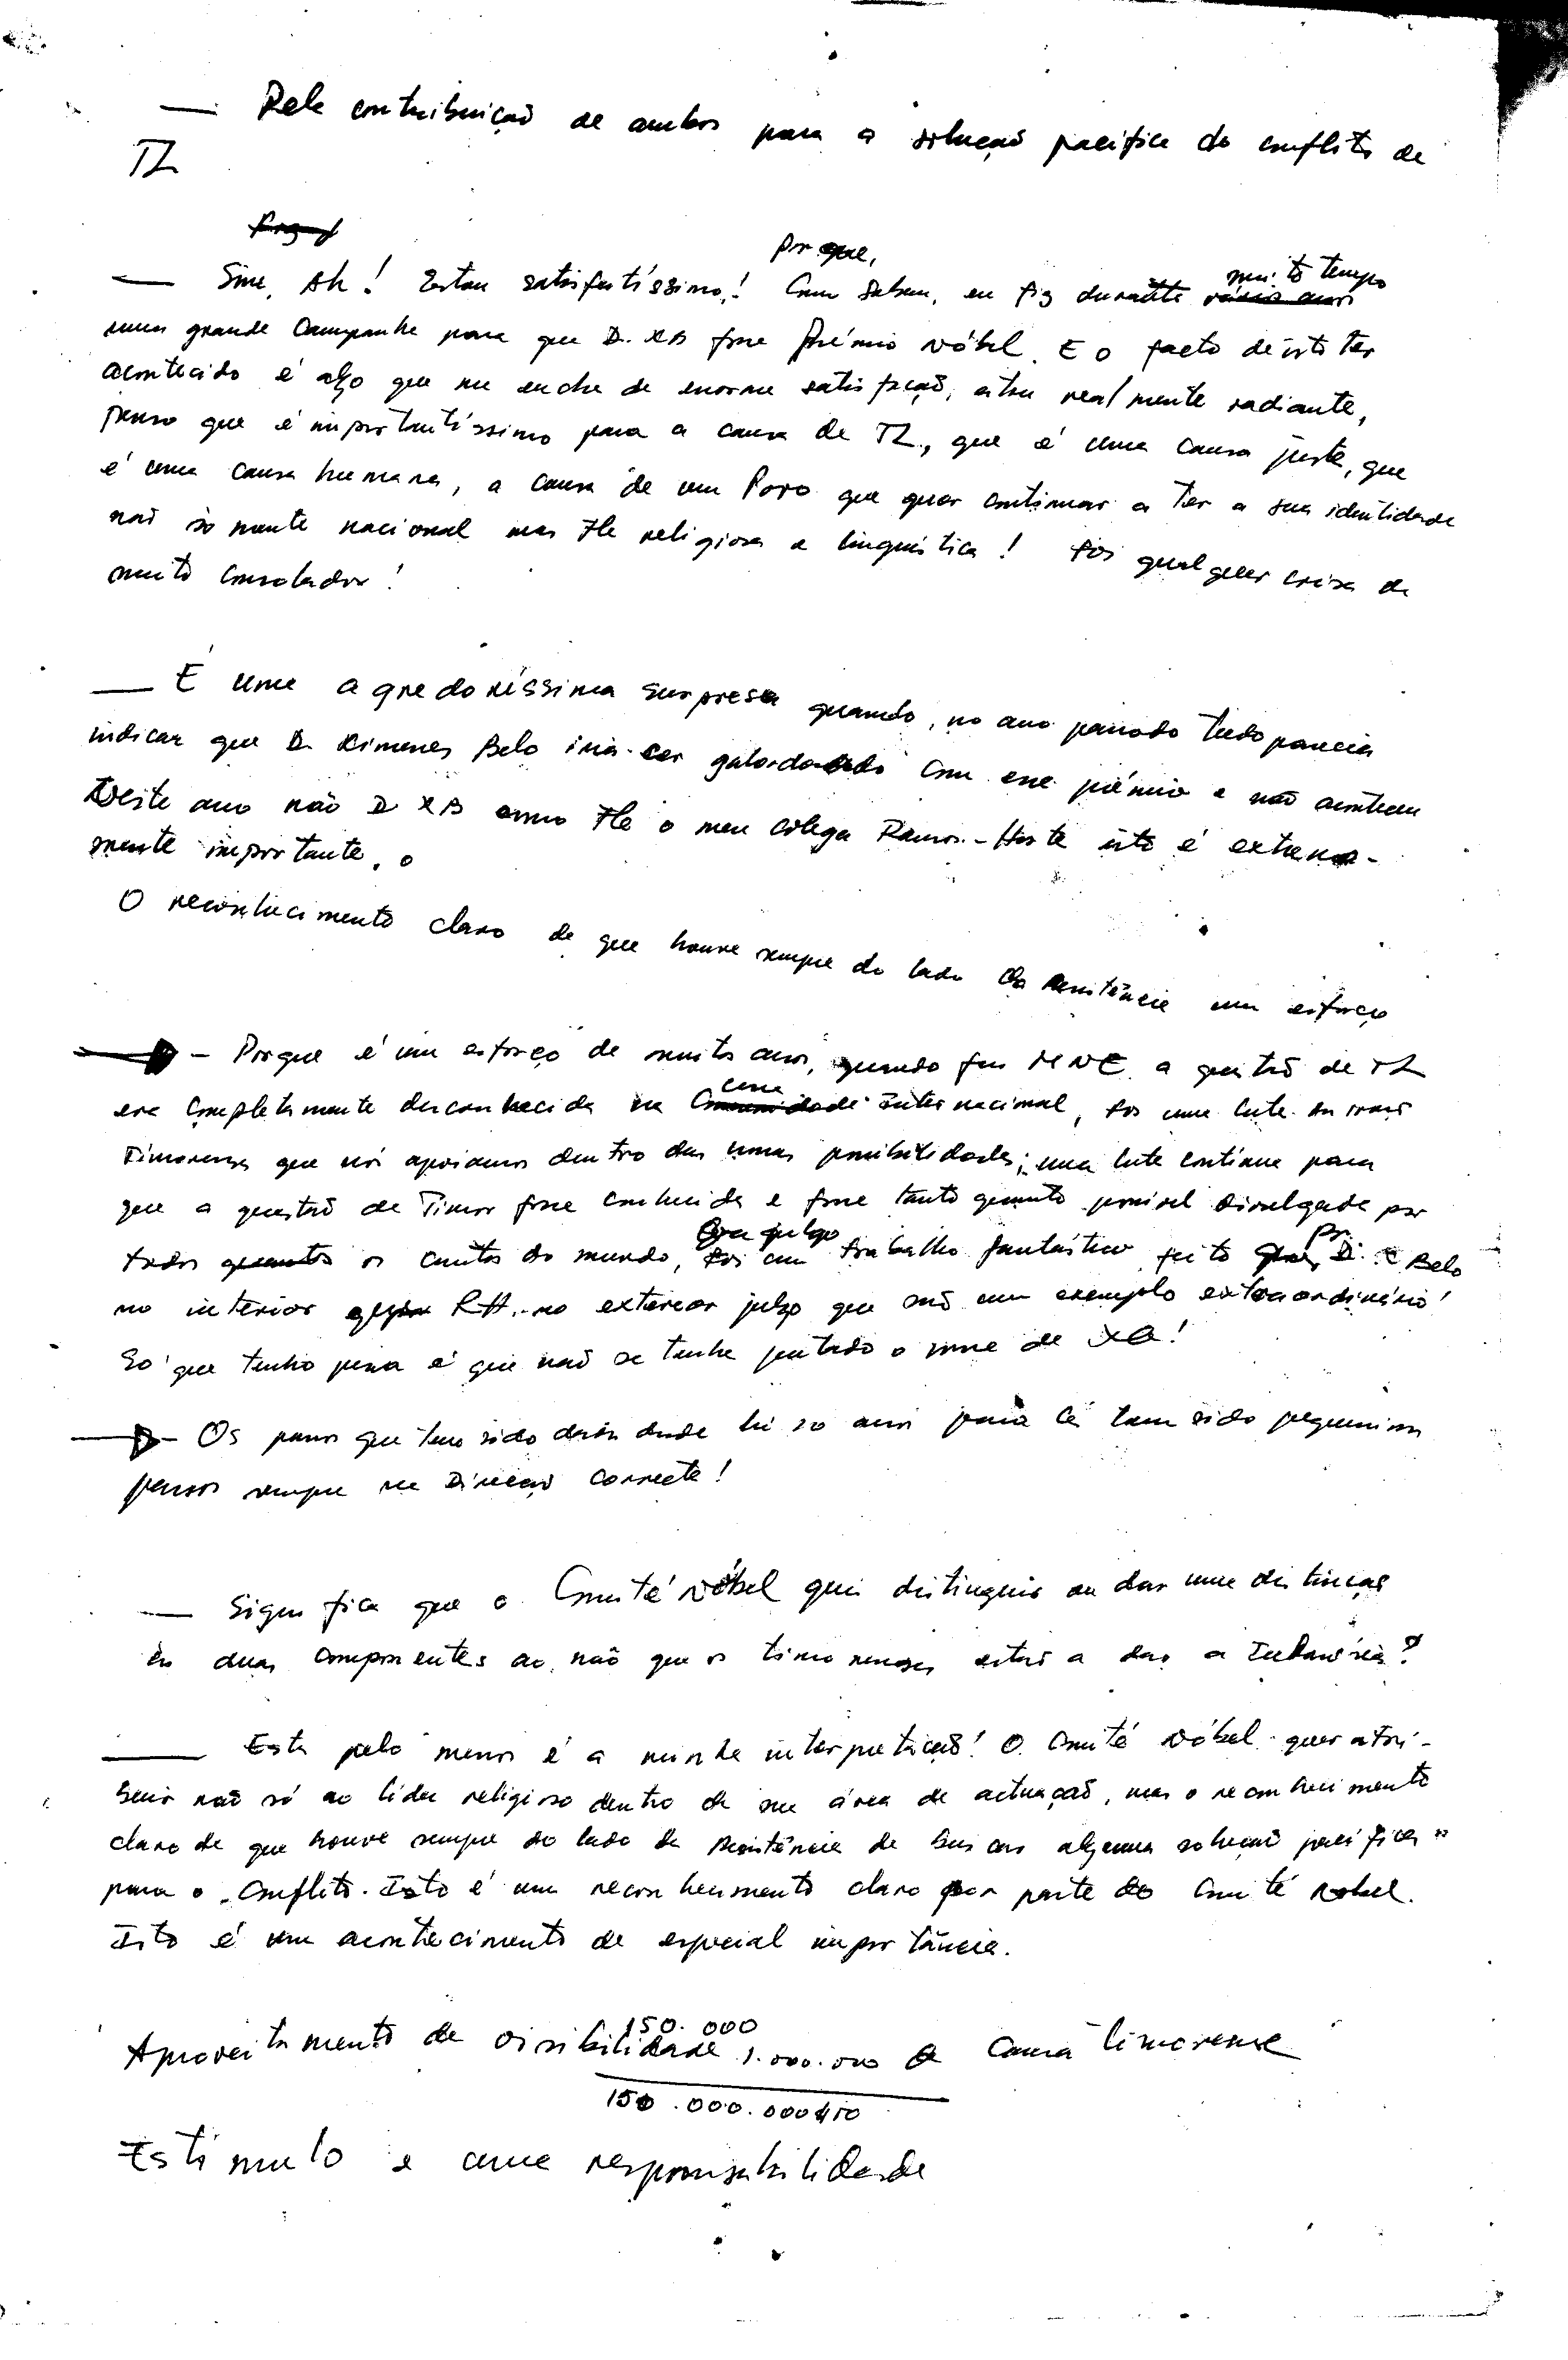 — Pela contribuição de ambos para a solução pacífica do conflito de
TL
— Sim, Ah! Estou satisfeitíssimo! Como sabem, porque, eu fiz durante muito tempo
uma grande Campanha para que D. XB fosse Prémio Nóbel. E o facto de isto ter
acontecido é algo que me enche de enorme satisfação, estou realmente radiante,
penso que é importantíssimo para a causa de TL, que é uma causa justa, que
é uma causa humana, a causa de um Povo que quer continuar a ter a sua identidade
não sómente nacional mas Até religiosa e linguística! Foi qualquer coisa de
muito consolador!
— É uma agradavíssima surpresa quando, no ano passado tudo parecia
indicar que D. Ximenes Belo iria ser galardoado com esse prémio e não aconteceu
Neste ano não D XB como Até o meu colega Ramos-Horta isto é extrema-
mente importante. o
O reconhecimento claro de que houve sempre do lado da Resistência um esforço
— Porque é um esforço de muitos anos, quando fui MNE a questão de TL
era completamente desconhecida na cena internacional, foi uma luta
Timorenses que nós apoiamos dentro das nossas possibilidades; uma luta contínua para
que a questão de Timor fosse conhecida e fosse tanto quanto possível divulgada por
todos os cantos do mundo, Ora julgo foi um trabalho fantástico feito por D. X Belo
no interior RH. no exterior julgo que são um exemplo extraordinário!
Só que tenho pena é que não se tenha juntado o nome de XG!
— Os passos que tem sido dados desde há 20 anos para cá tem sido pequenino
passos sempre na Direcção correcta!
— Significa que o Comité Nóbel quis distinguir ou dar uma distinção
às duas componentes ao não que os timorenses estão a dar a Indonésia?
— Esta pelo menos é a minha interpretação! O Comité Nóbel quer atri-
buir não só ao líder religioso dentro da sua área de actuação, mas o reconhecimento
claro de que houve sempre do lado da Resistência de buscar alguma solução pacífica
para o Conflito. Isto é um reconhecimento claro por parte do Comité Nobel.
Isto é um acontecimento de especial importância.
150.000
Aproveitamento de visibilidade 1.000.000 a Causa timorense
150.000.000$00
Estímulo e uma responsabilidade